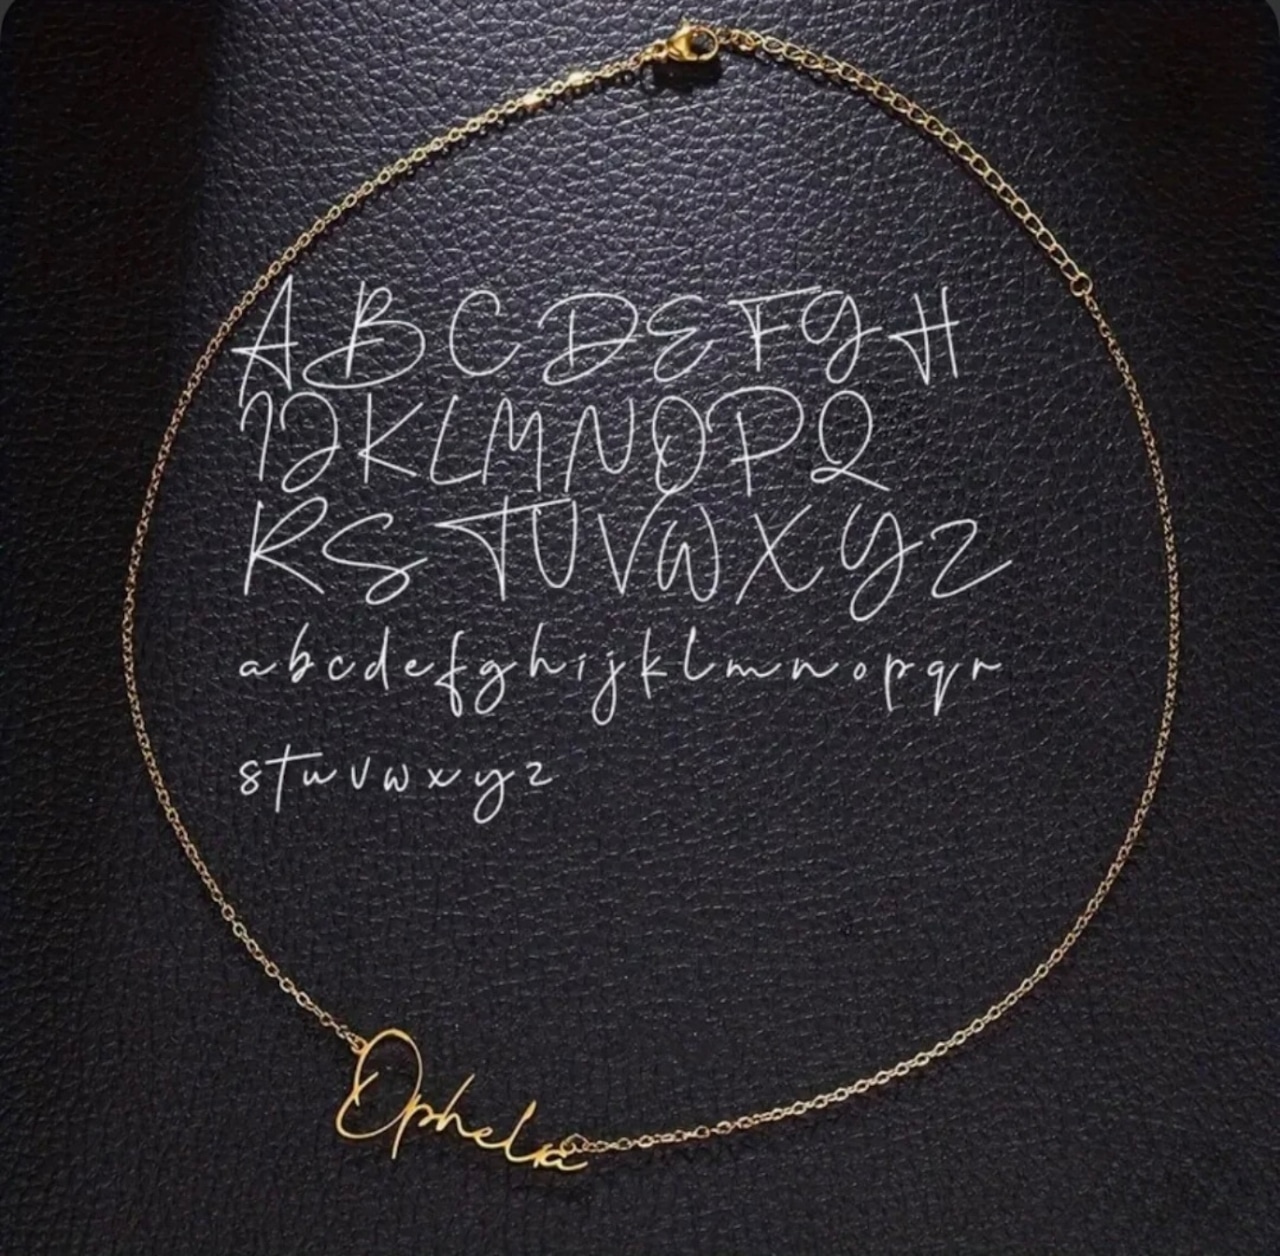 A B C D E F G H
I J K L M N O P Q
R S T U V W X Y Z
a b c d e f g h i j k l m n o p q r
s t u v w x y z
Ophelia